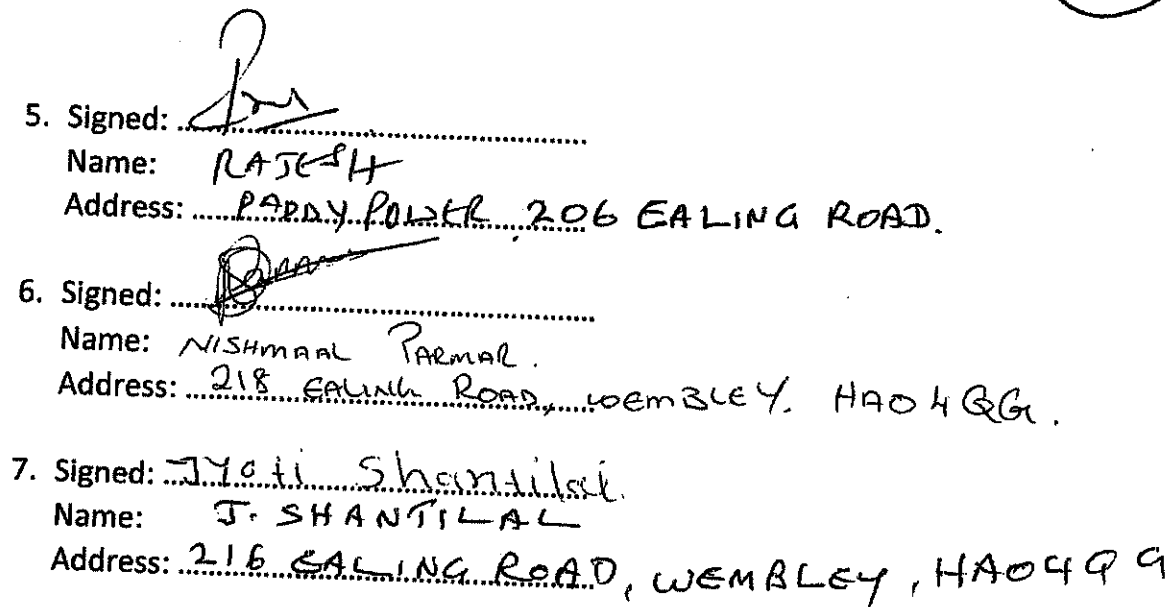 5. Signed:
Name: RAJESH
Address: PADDY POWER 206 EALING ROAD.
6. Signed: Parmar
Name: NISHMAAL PARMAR.
Address: 218 EALING ROAD, WEMBLEY. HA0 4QG.
7. Signed: Jyoti Shantilal
Name: J. SHANTILAL
Address: 216 EALING ROAD, WEMBLEY, HA04QG